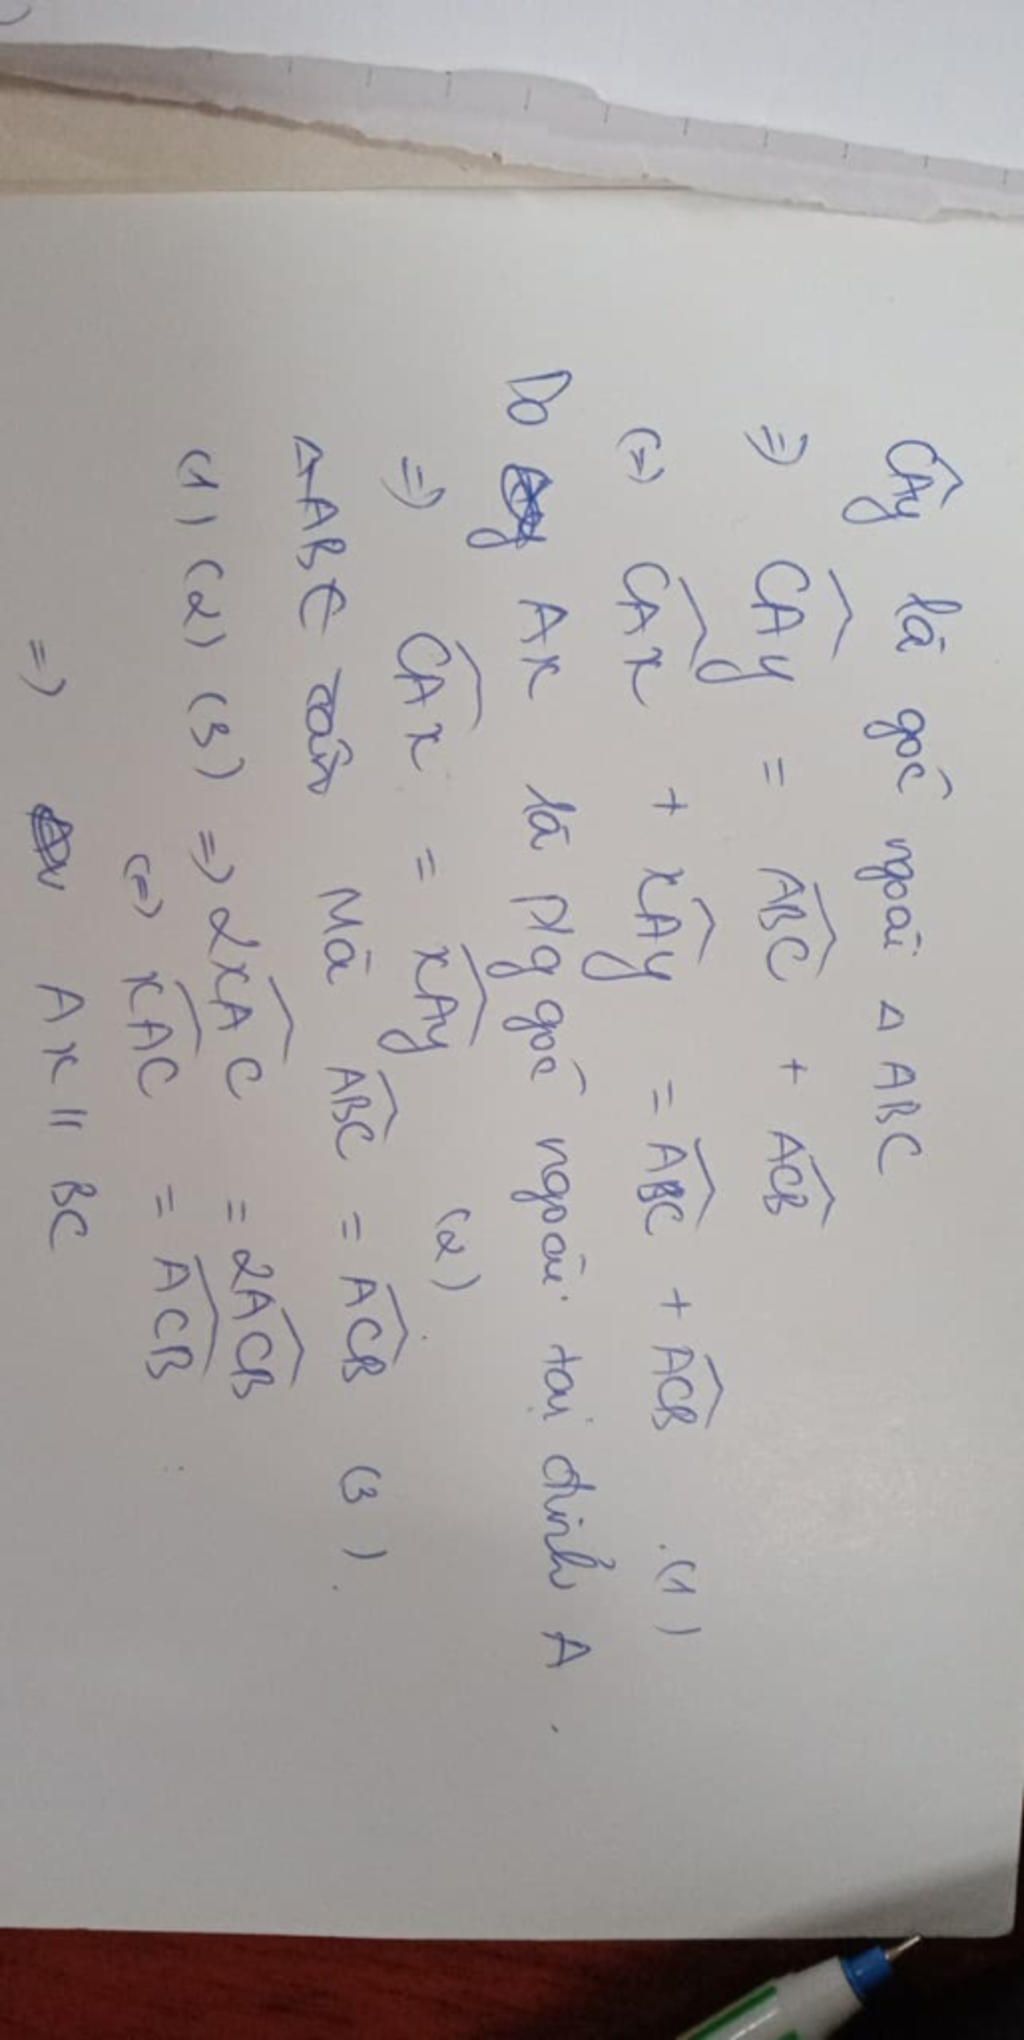 CÂy là góc ngoài Δ ABC
=> CÂy = ABC + ACB
(=) CAx + xAy = ABC + ACB (1)
Do Ax là p/g góc ngoài tại đỉnh A.
=> CAx = xAy (2)
ΔABC cân Mà ABC = ACB (3).
(1) (2) (3) => 2xAC = 2ACB
(=) xAC = ACB
=> Ax // BC